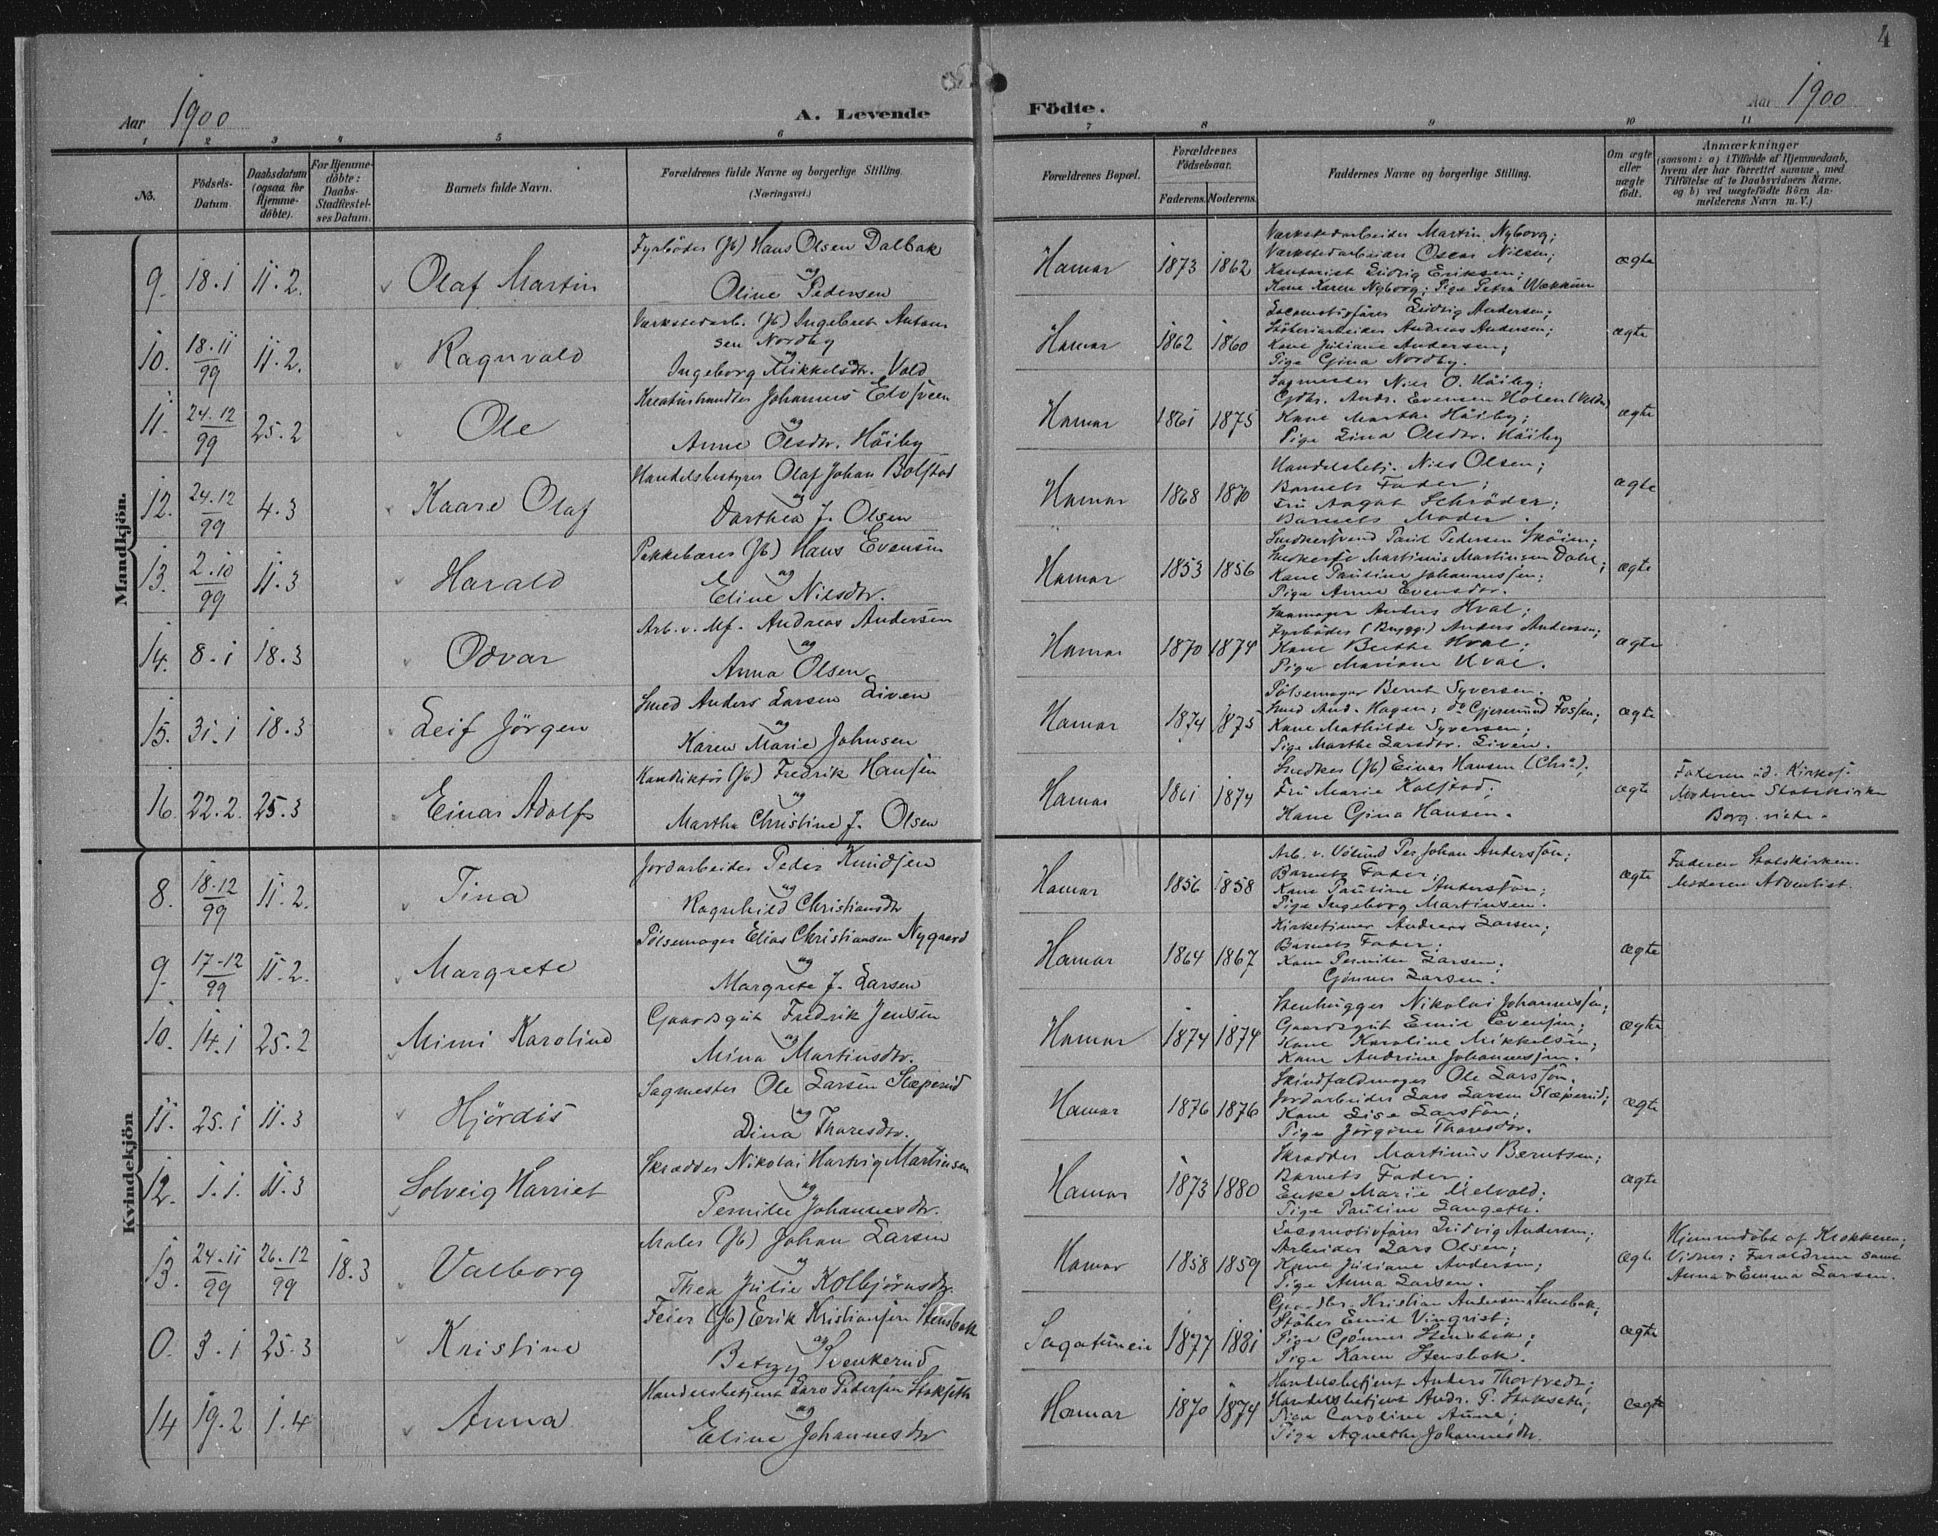 4
Aar 1900
A. Levende
Födte.
Aar 1900
1 2 3 4 5 6 7 8 9 10 11
No.
Födsels-
Datum.
Daabsdatum
(ogsaa for
Hjemme-
döbte).
For Hjemme-
döbte:
Daabs-
Stadfæstel-
ses Datum.
Barnets fulde Navn.
Forældrenes fulde Navne og borgerlige Stilling.
(Næringsvei.)
Forældrenes Bopæl.
Forældrenes
Födselsaar.
Faderens. Moderens.
Faddernes Navne og borgerlige Stilling.
Om ægte
eller
uægte
födt.
Anmærkninger
(saasom: a) i Tilfælde af Hjemmedaab,
hvem der har forrettet samme, med
Tilföielse af to Daabsvidners Navne,
og b) ved uægtefödte Börn An-
melderens Navn m. V.)
Mandkjön.
9. 18.1 11.2. Olaf Martin
Fyrböder (Jb) Hans Olsen Dalbak
og
Oline Pedersen
Hamar 1873 1862
Værkstedarbeider Martin Nyborg;
Værkstedarbeider Oscar Nilsen;
Kontorist Ludvig Eriksen;
Kone Karen Nyborg; Pige Petra
ægte
10. 18.11/99 11.2. Ragnvald
Værkstedarb. (Jb) Ingebret Anton
sen Nordby
og
Ingeborg Mikkelsdtr. Vold
Hamar 1862 1860
Locomotivförer Ludvig Andersen;
Stöberiarbeider Andreas Andersen;
Kone Juliane Andersen;
Pige Gina Nordby.
ægte
11. 24.12/99 25.2 Ole
Kreaturhandler Johannes
og
Anne Olsdtr. Höiby
Hamar 1861 1875
Sagmester Nils O. Höiby;
Gdbr. Andr. Evensen Holen
Kone Marthe Höiby;
Pige Lina Olsdtr. Höiby
ægte
12. 24.12/99 4.3 Kaare Olaf
Handelsbestyrer Olaf Johan Bolstad
og
Dorthea J. Olsen
Hamar 1868 1870
Handelsbetj. Nils Olsen;
Barnets Fader;
Fru Aagot Schröder;
Barnets Moder.
ægte
13. 2.10/99 11.3 Harald
Pakkebærer (Jb) Hans Evensen
og
Eline Nilsdtr.
Hamar 1853 1856
Snedkersvend Paul Pedersen Sköien;
Martinius Martinsen Dahl;
Kone Pauline Johannessen;
Pige Anna Evensdtr.
ægte
14. 8.1 18.3 Odvar
Arb. v. Mf. Andreas Andersen
og
Anna Olsen
Hamar 1870 1874
Skomager Anders Hval;
Fyrböder (Brygg.) Anders Andersen;
Kone Berthe Hval;
Pige Mariane Hval.
ægte
15. 31.1 18.3 Leif Jörgen
Smed Anders Larsen Liven
og
Karen Marie Johnsen
Hamar 1874 1875
Pölsemager Bernt Syversen.
Smed And. Hagen; do Gjermund Fossen;
Kone Mathilde Syversen;
Pige Marthe Larsdtr. Liven.
ægte
16. 22.2. 25.3 Einar Adolf
Konduktör (Jb) Fredrik Hansen
og
Martha Christine J. Olsen
Hamar 1861 1874
Snedker (Jb) Einar Hansen (Chra);
Fru Marie Kolstad;
Kone Gina Hansen.
ægte
Faderen ud. Kirkes.
Moderen Statskirken
Borg. viede.
Kvindekjön
8. 18.12/99 11.2. Tina
Jordarbeider Peder Knudsen
og
Ragnhild Christiansdtr
Hamar 1856 1858
Arb. v. Völund Per Johan Anderssön;
Barnets Fader;
Kone Pauline Anderssön;
Pige Ingeborg Martinsen.
ægte
Faderen Statskirken.
Moderen Adventist.
9. 17.12/99 11.2. Margrete
Pölsemager Elias Christiansen Nygaard
og
Margrete J. Larsen
Hamar 1864 1867
Kirketjener Andreas Larsen;
Barnets Fader;
Kone Pernille Larsen;
Gunner Larsen.
ægte
10. 14.1 25.2 Mimi Karoline
Gaardsgut Fredrik Jensen
og
Mina Martinsdtr.
Hamar 1874 1874
Stenhugger Nikolai Johannessön;
Gaardsgut Emil Evensen;
Kone Karoline Mikkelsen;
Kone Andrine Johannessen.
ægte
11. 25.1 11.3 Hjördis
Sagmester Ole Larsen Slæperud
og
Dina Thoresdtr.
Hamar 1876 1876
Skindfeldmager Ole Larssön.
Jordarbeider Lars Larsen Slæperud;
Kone Lise Larssön;
Pige Jörgine Thoresdtr.
ægte
12. 1.1. 11.3 Solveig Harriet
Skrædder Nikolai Hartvig Martinsen
og
Pernille Johannesdtr.
Hamar 1873 1880
Skrædder Martinus Berntsen;
Barnets Fader.
Enke Marie Melvold;
Pige Pauline Langeth.
ægte
13. 24.11/99 26.12/99 18.3 Valborg
Maler (Jb) Johan Larsen
og
Thea Julie Kolbjörnsdtr.
Hamar 1858 1859
Locomotivförer Ludvig Andersen;
Arbeider Lars Olsen;
Kone Juliane Andersen;
Pige Anna Larsen.
ægte
Hjemmedöbt af Klokkeren;
Vidner: Forældrene samt
Anna & Emma Larsen.
0. 3.1 25.3 Kristine
Feier (Jb) Erik Kristiansen Stensbak
og
Betzy Svenkerud
1877 1881
Gaardbr. Kristian Andersen Stensbak,
Stöber Emil Vinqvist;
Pige Gunner Stensbak;
Pige Karen Stensbak.
ægte
14 19.2 1.4 Anna
Handelsbetjent Lars Pedersen Stokseth
og
Eline Johannesdtr
Hamar 1870 1874
Handelsbetjent Anders Thortvedt;
Handelsbetjent Andr. P. Stokseth;
Pige Caroline Aune;
Pige Agnethe Johannesdtr.
ægte